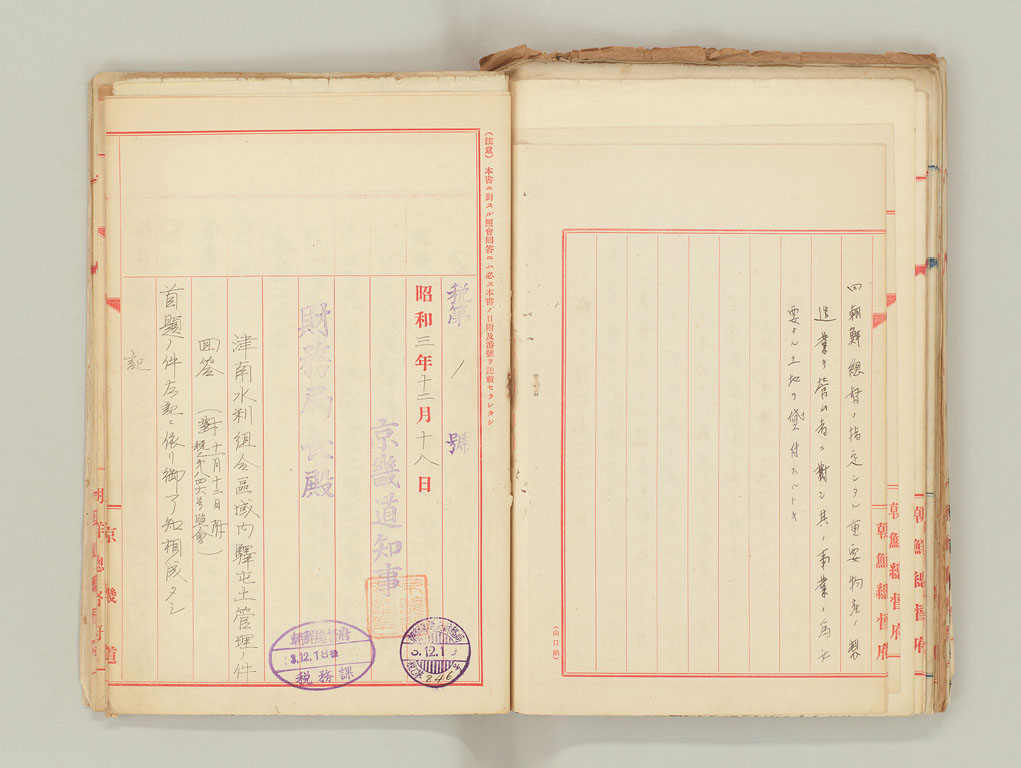 四 朝鮮總督ノ指定シタル重要物産ノ製
造業ヲ營ム者ニ對シ其ノ事業ノ爲必
要ナル土地ヲ貸付スルトキ
朝鮮總督府
朝鮮總督府
朝鮮總督府
(注意) 本書ニ對スル照會回答ニハ必ス本書ノ日附及番號ヲ記載セラレタシ
税第 1 號
昭和三年十二月十八日
京畿道知事
財務局長殿
津南水利組合區域内驛屯土管理ノ件
回答(對十二月十二日附
號照會)
首題ノ件左記ニ依リ御了知相成タシ
記
朝鮮總督府
3.12.18
税務課
京畿道
朝鮮總督府